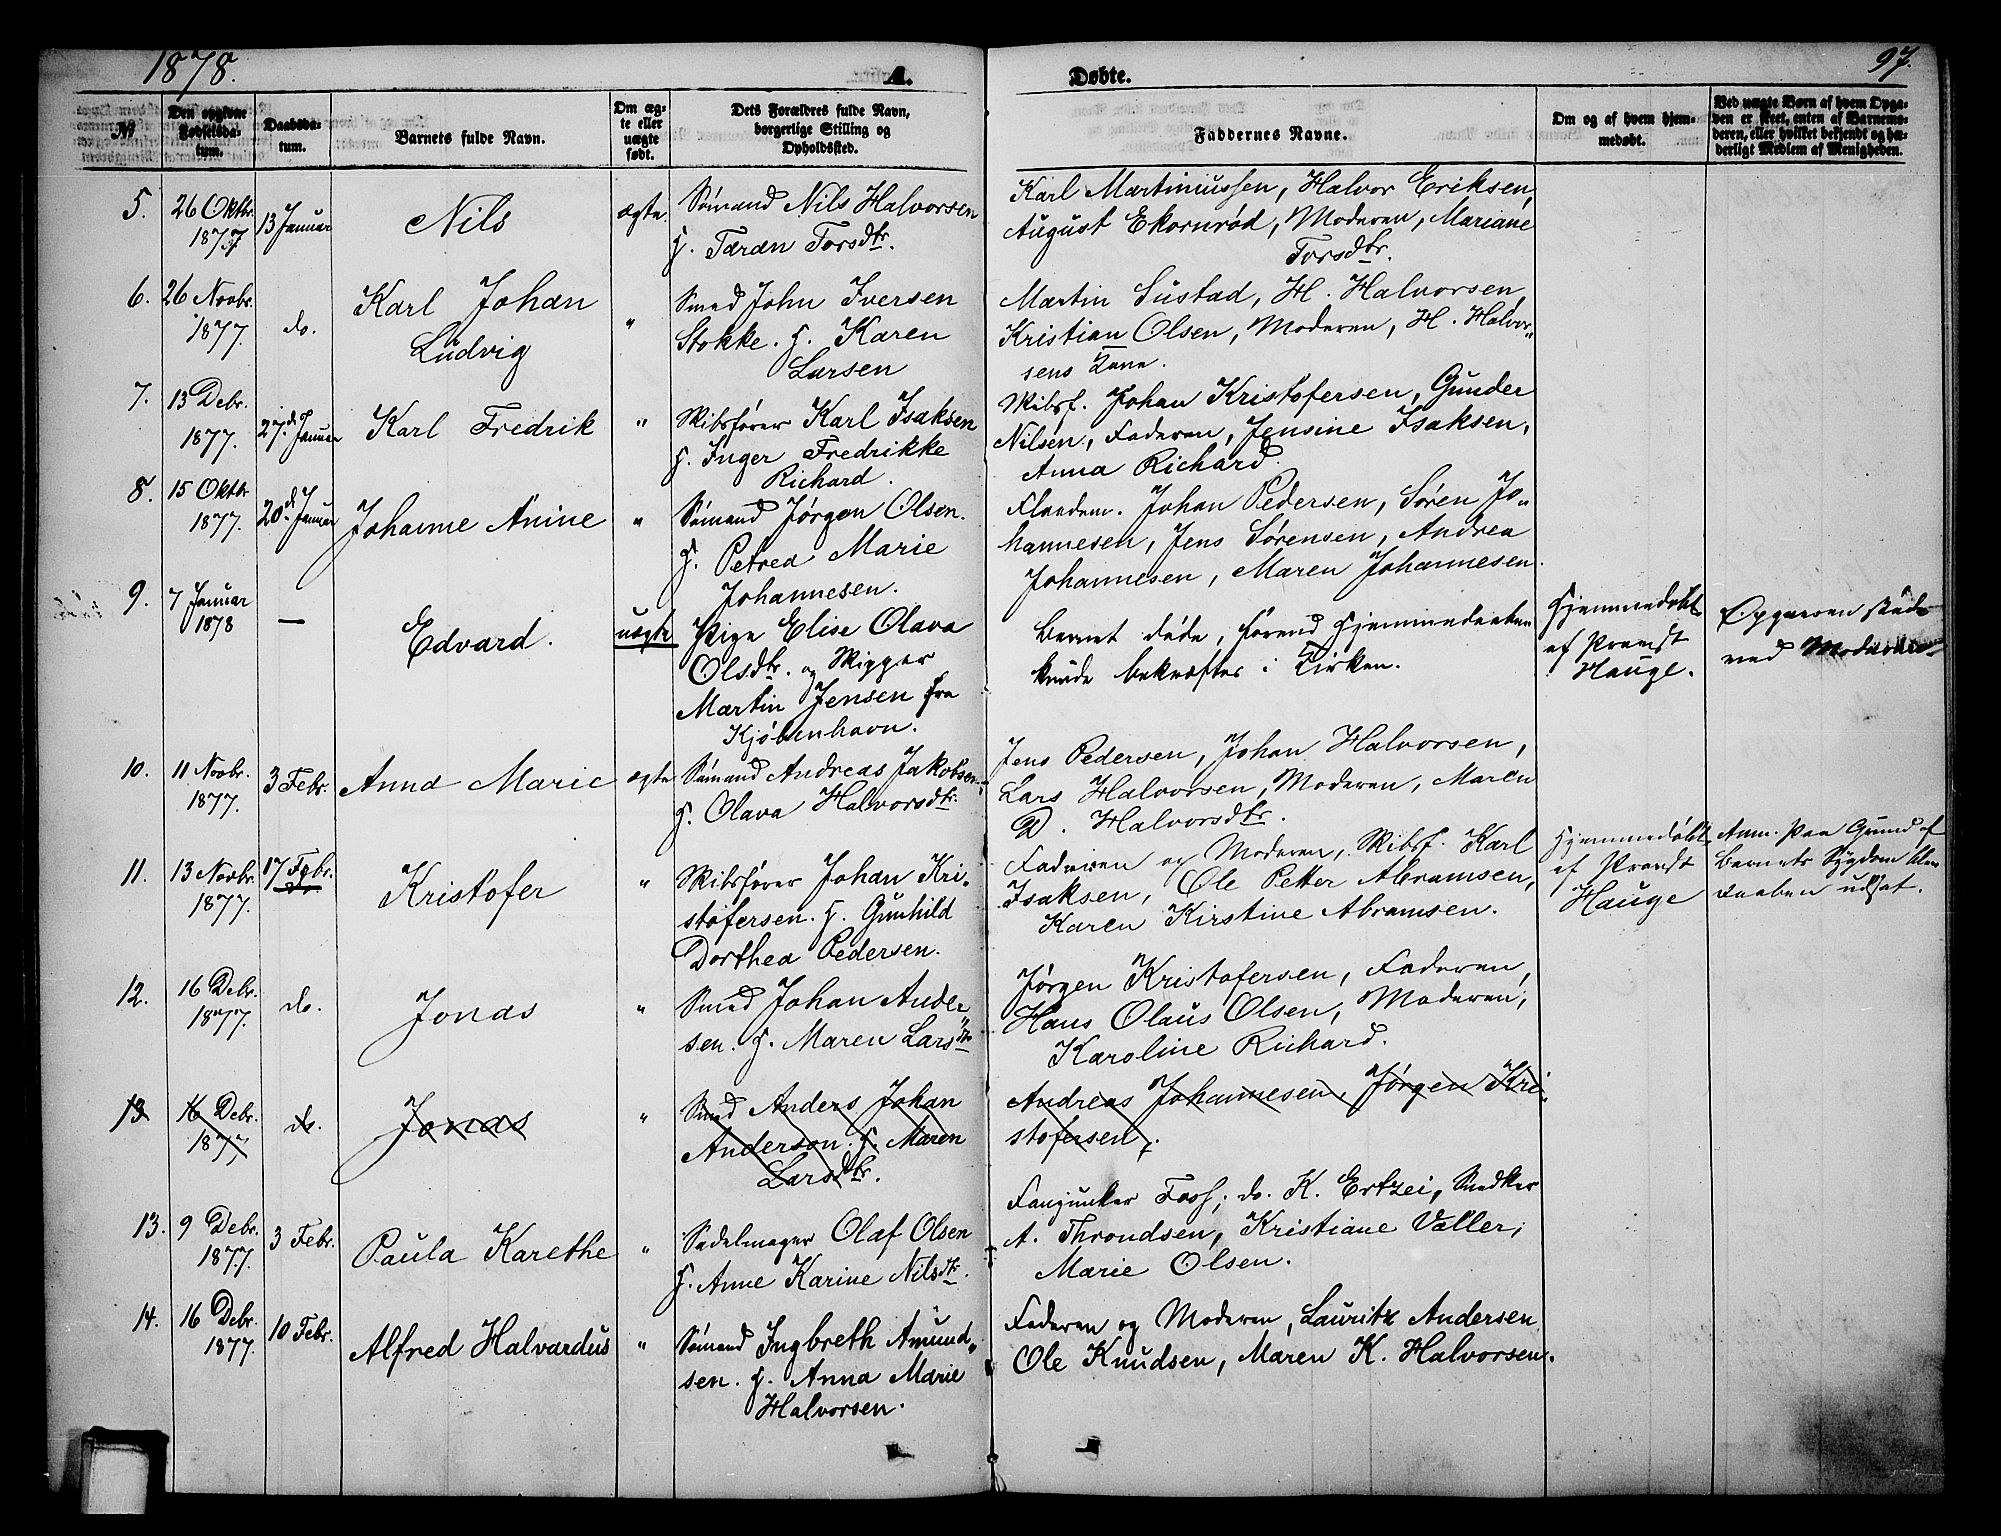 1878.
A.
Døbte.
97.
№
Den opgivne Fødselsdatum.
Daabsdatum.
Barnets fulde Navn.
Om ægte eller uægte født.
Dets Forældres fulde Navn, borgerlige Stilling og Opholdssted.
Faddernes Navne.
Om og af hvem hjemmedøbt.
Ved uægte Børn af hvem Opgaven er skeet, enten af Barnemoderen, eller hvilket bekjendt og hæderligt Medlem af Menigheden.
5.
26 Oktbr.
1877
13 Januar
Nils
ægte
Sømand Nils Halvorsen
H. Taran Torsdtr.
Karl Martiniussen, Halvor Eriksen,
August Ekornrød, Moderen, Mariane
Torsdtr.
6.
26 Novbr.
1877.
do.
Karl Johan
Ludvig
"
Smed John Iversen
Stokke. H. Karen
Larsen
Martin Sustad, H. Halvorsen,
Kristian Olsen, Moderen, H. Halvor-
sens Kone.
7.
13 Debr.
1877.
27.d. Januar
Karl Fredrik
"
Skibsfører Karl Isaksen
H. Inger Fredrikke
Richard.
Skibsf. Johan Kristofersen, Gunder
Nilsen, Faderen, Jensine Isaksen,
Anna Richard.
8.
15 Oktbr
1877.
20.d. Januar
Johanne Anine
"
Sømand Jørgen Olsen.
H. Petrea Marie
Johannesen.
Eleedem. Johan Pedersen, Søren Jo-
hannesen, Jens Sørensen, Andrea
Johannesen, Maren Johannesen.
9.
7 Januar
1878
—
Edvard.
uægte
Pige Elise Olava
Olsdtr. og Skipper
Martin Jensen fra
Kjøbenhavn.
Barnet døde, førend Hjemmedaaben
kunde bekræftes i Kirken.
Hjemmedøbt
af Provst
Hauge.
Opgaven skede
ved Moderen
10.
11 Novbr.
1877.
3 Febr.
Anna Marie
ægte
Sømand Andreas Jakobsen.
H. Olava Halvorsdtr.
Jens Pedersen, Johan Halvorsen,
Lars Halvorsen, Moderen, Maren
D. Halvorsdtr.
11.
13 Novbr.
1877.
17 Febr.
Kristofer
"
Skibsfører Johan Kri-
stofersen. H. Gunhild
Dorthea Pedersen.
Faderen og Moderen, Skibsf. Karl
Isaksen, Ole Petter Abramsen,
Karen Kirstine Abramsen.
Hjemmedøbt
af Provst
Hauge
Anm. Paa Grund af
Barnets Sygdom blev
Daaben udsat.
12.
16 Debr.
1877.
do.
Jonas
"
Smed Johan Ander-
sen. H. Maren Larsdtr
Jørgen Kristofersen, Faderen,
Hans Olaus Olsen, Moderen,
Karoline Richard.
13
16 Debr.
1877
do.
Jonas
"
Smed Anders Johan
Anderson. H. Maren
Larsdtr.
Andreas Johannesen, Jørgen Kri-
stofersen,
13.
9 Debr.
1877.
3 Febr.
Paula Karethe
"
Sadelmager Olaf Olsen
H. Anne Karine Nilsdtr.
Fanejunker Foss, do. K. Ertzei, Snedker
A. Throndsen, Kristiane Valler,
Marie Olsen.
14.
16 Debr.
1877.
10 Febr.
Alfred Halvardus
"
Sømand Ingbreth Amund-
sen. H. Anna Marie
Halvorsen.
Faderen og Moderen, Lauritz Andersen
Ole Knudsen, Maren K. Halvorsen.